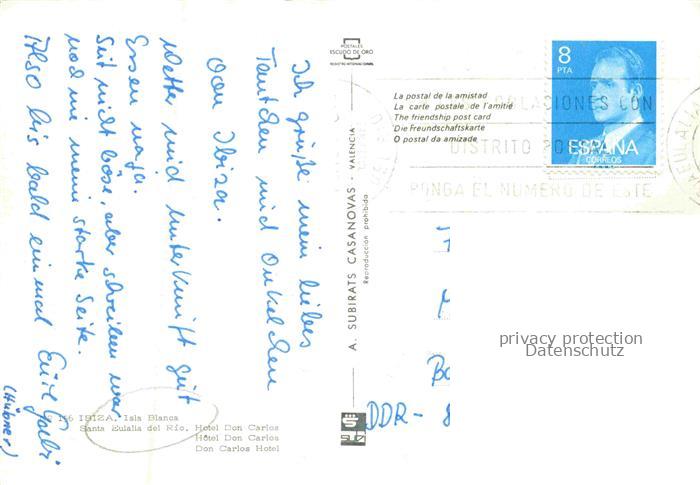 Ich grüße mein liebes
Tantchen und Onkelchen
von Ibiza.
Wetter und Unterkunft gut
Essen naja.
Seit nicht böse, aber schreiben war
noch nie meine starke Seite.
Also bis bald einmal Eure Gabi
(Hübner)
166 IBIZA. Isla Blanca
Santa Eulalia del Río. Hotel Don Carlos
Hôtel Don Carlos
Don Carlos Hotel
POSTALES
ESCUDO DE ORO
REGISTRO INTERNACIONAL
A. SUBIRATS CASANOVAS - VALENCIA
Reproducción prohibida
La postal de la amistad
La carte postale de l'amitié
The friendship post card
Die Freundschaftskarte
O postal da amizade
8
PTA
ESPAÑA
CORREOS
POBLACIONES CON
DISTRITO POSTAL
PONGA EL NUMERO DE ESTE
EULALIA
DDR-
privacy protection
Datenschutz